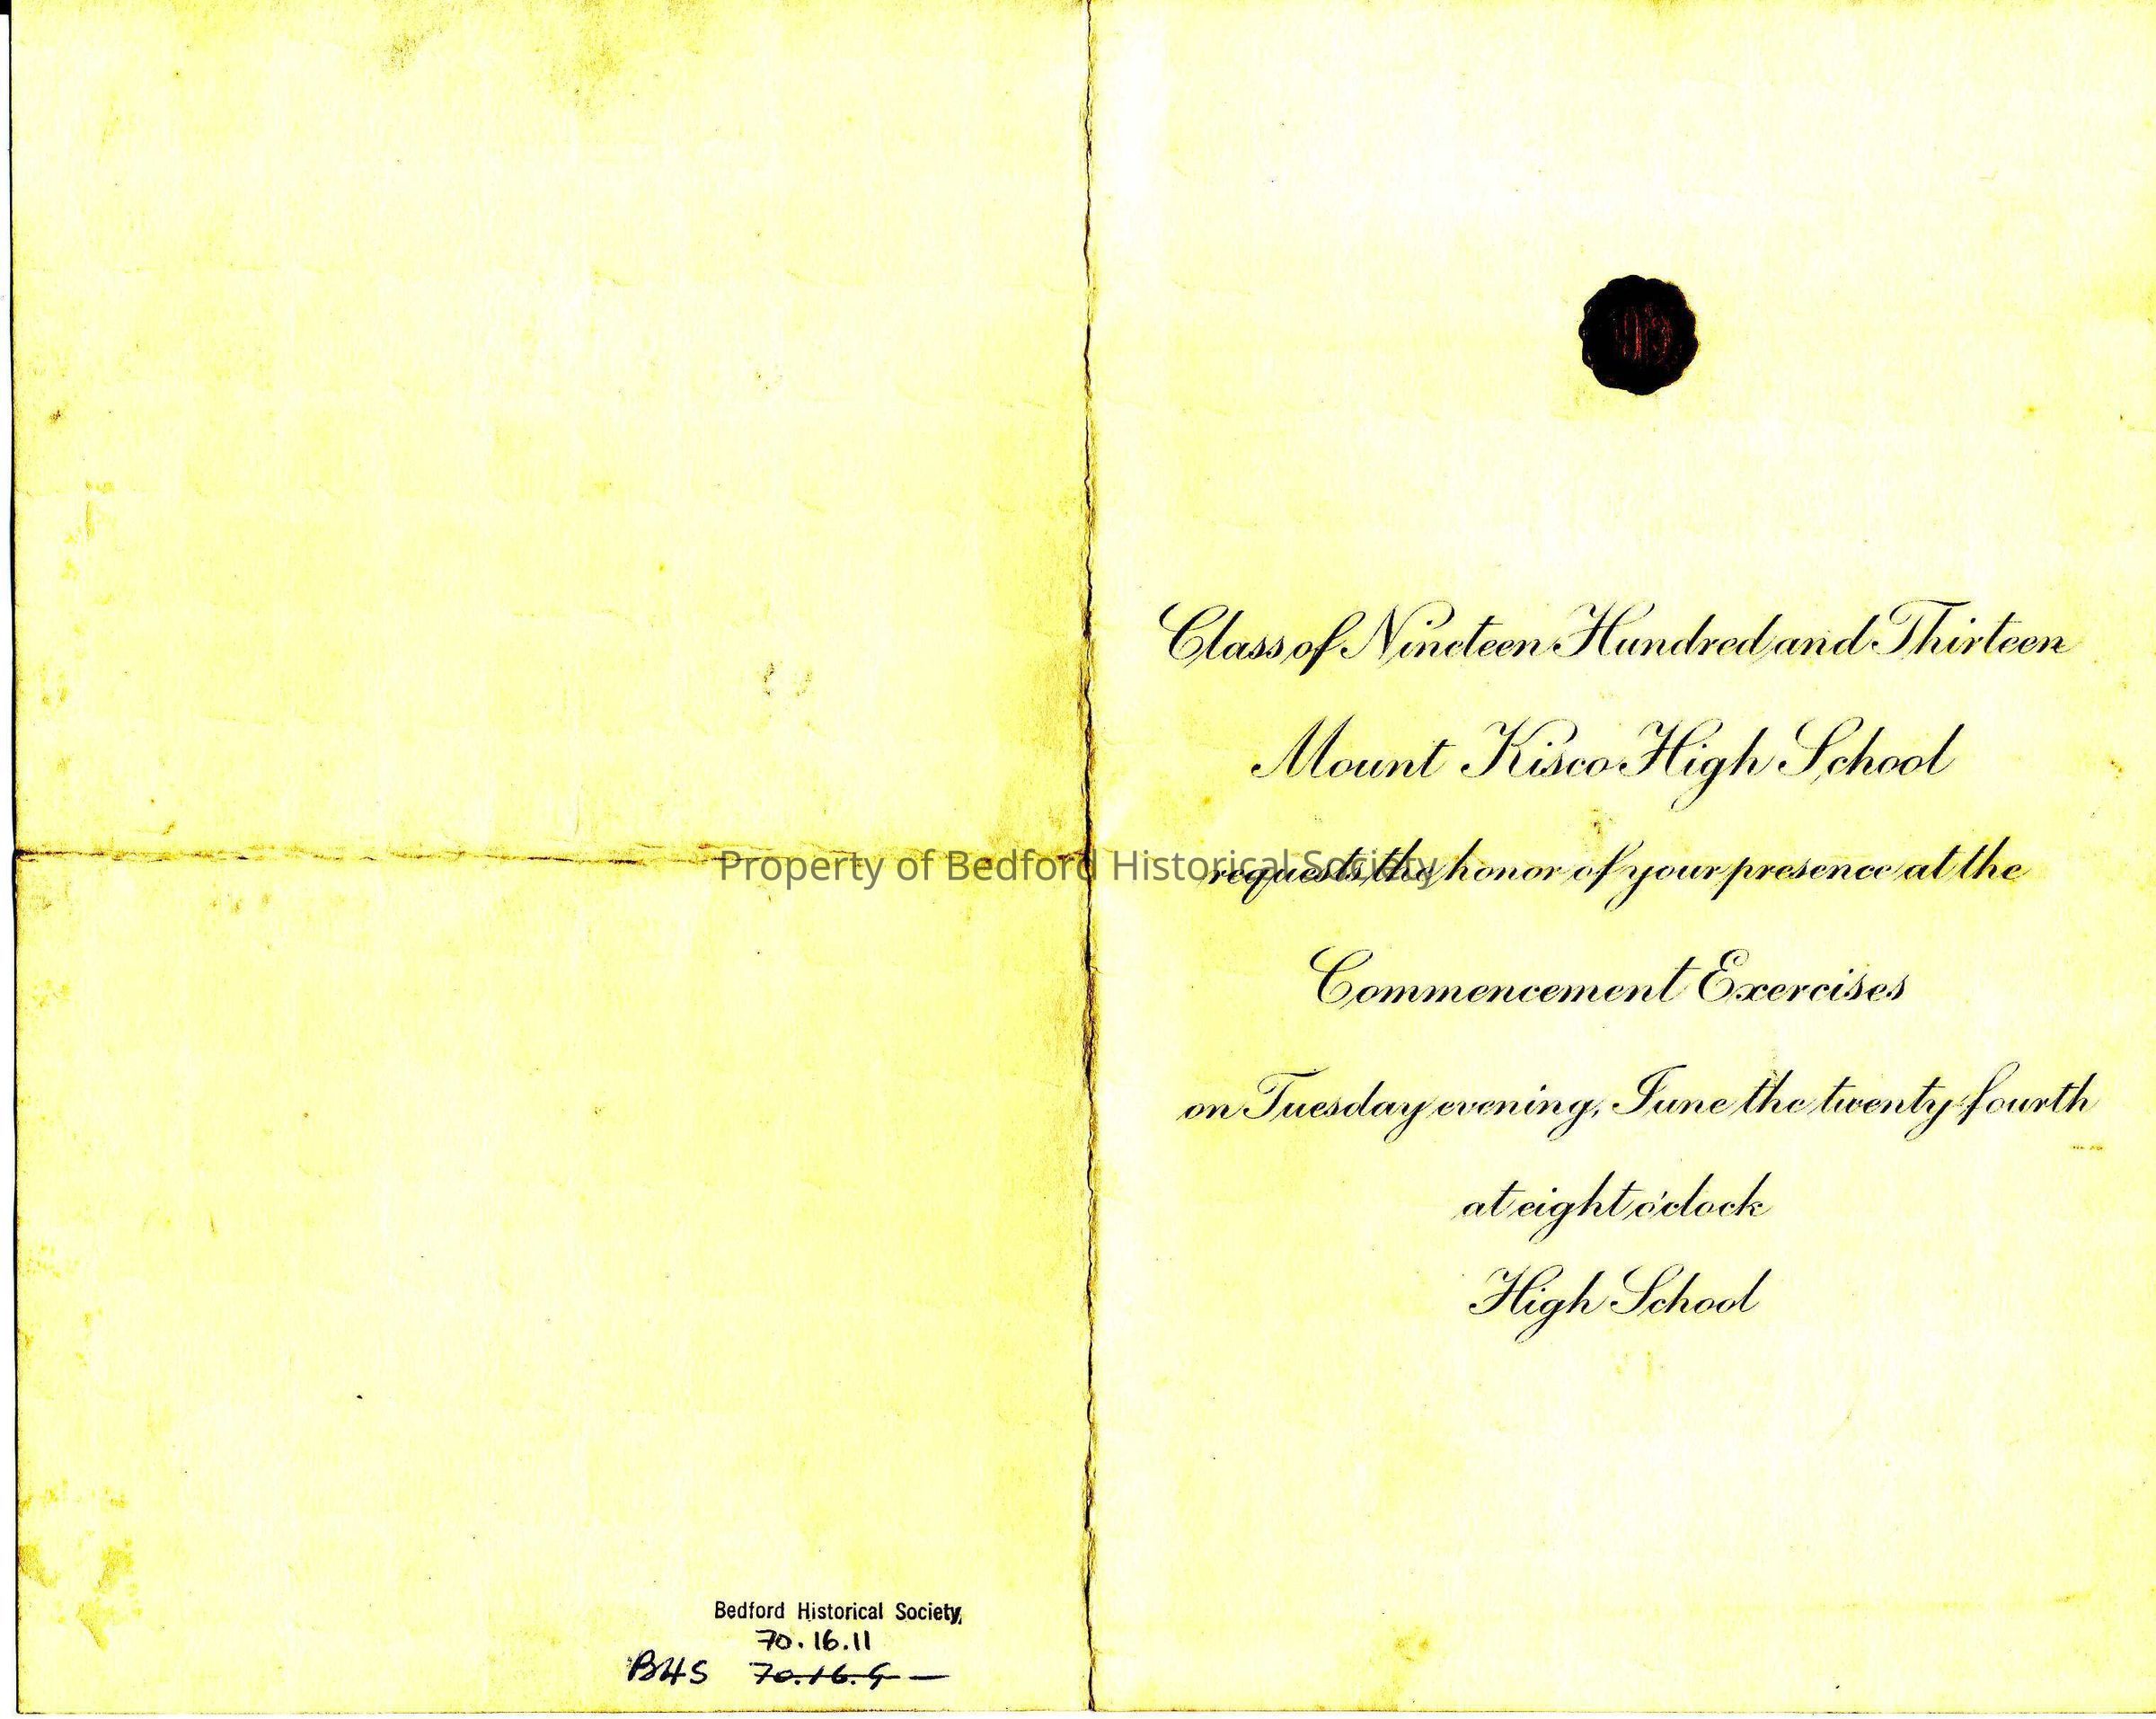 Class of Nineteen Hundred and Thirteen
Mount Kisco High School
requests the honor of your presence at the
Commencement Exercises
on Tuesday evening, June the twenty-fourth
at eight o'clock
High School
Property of Bedford Historical Society
Bedford Historical Society
70.16.11
BHS 70.16.9 —